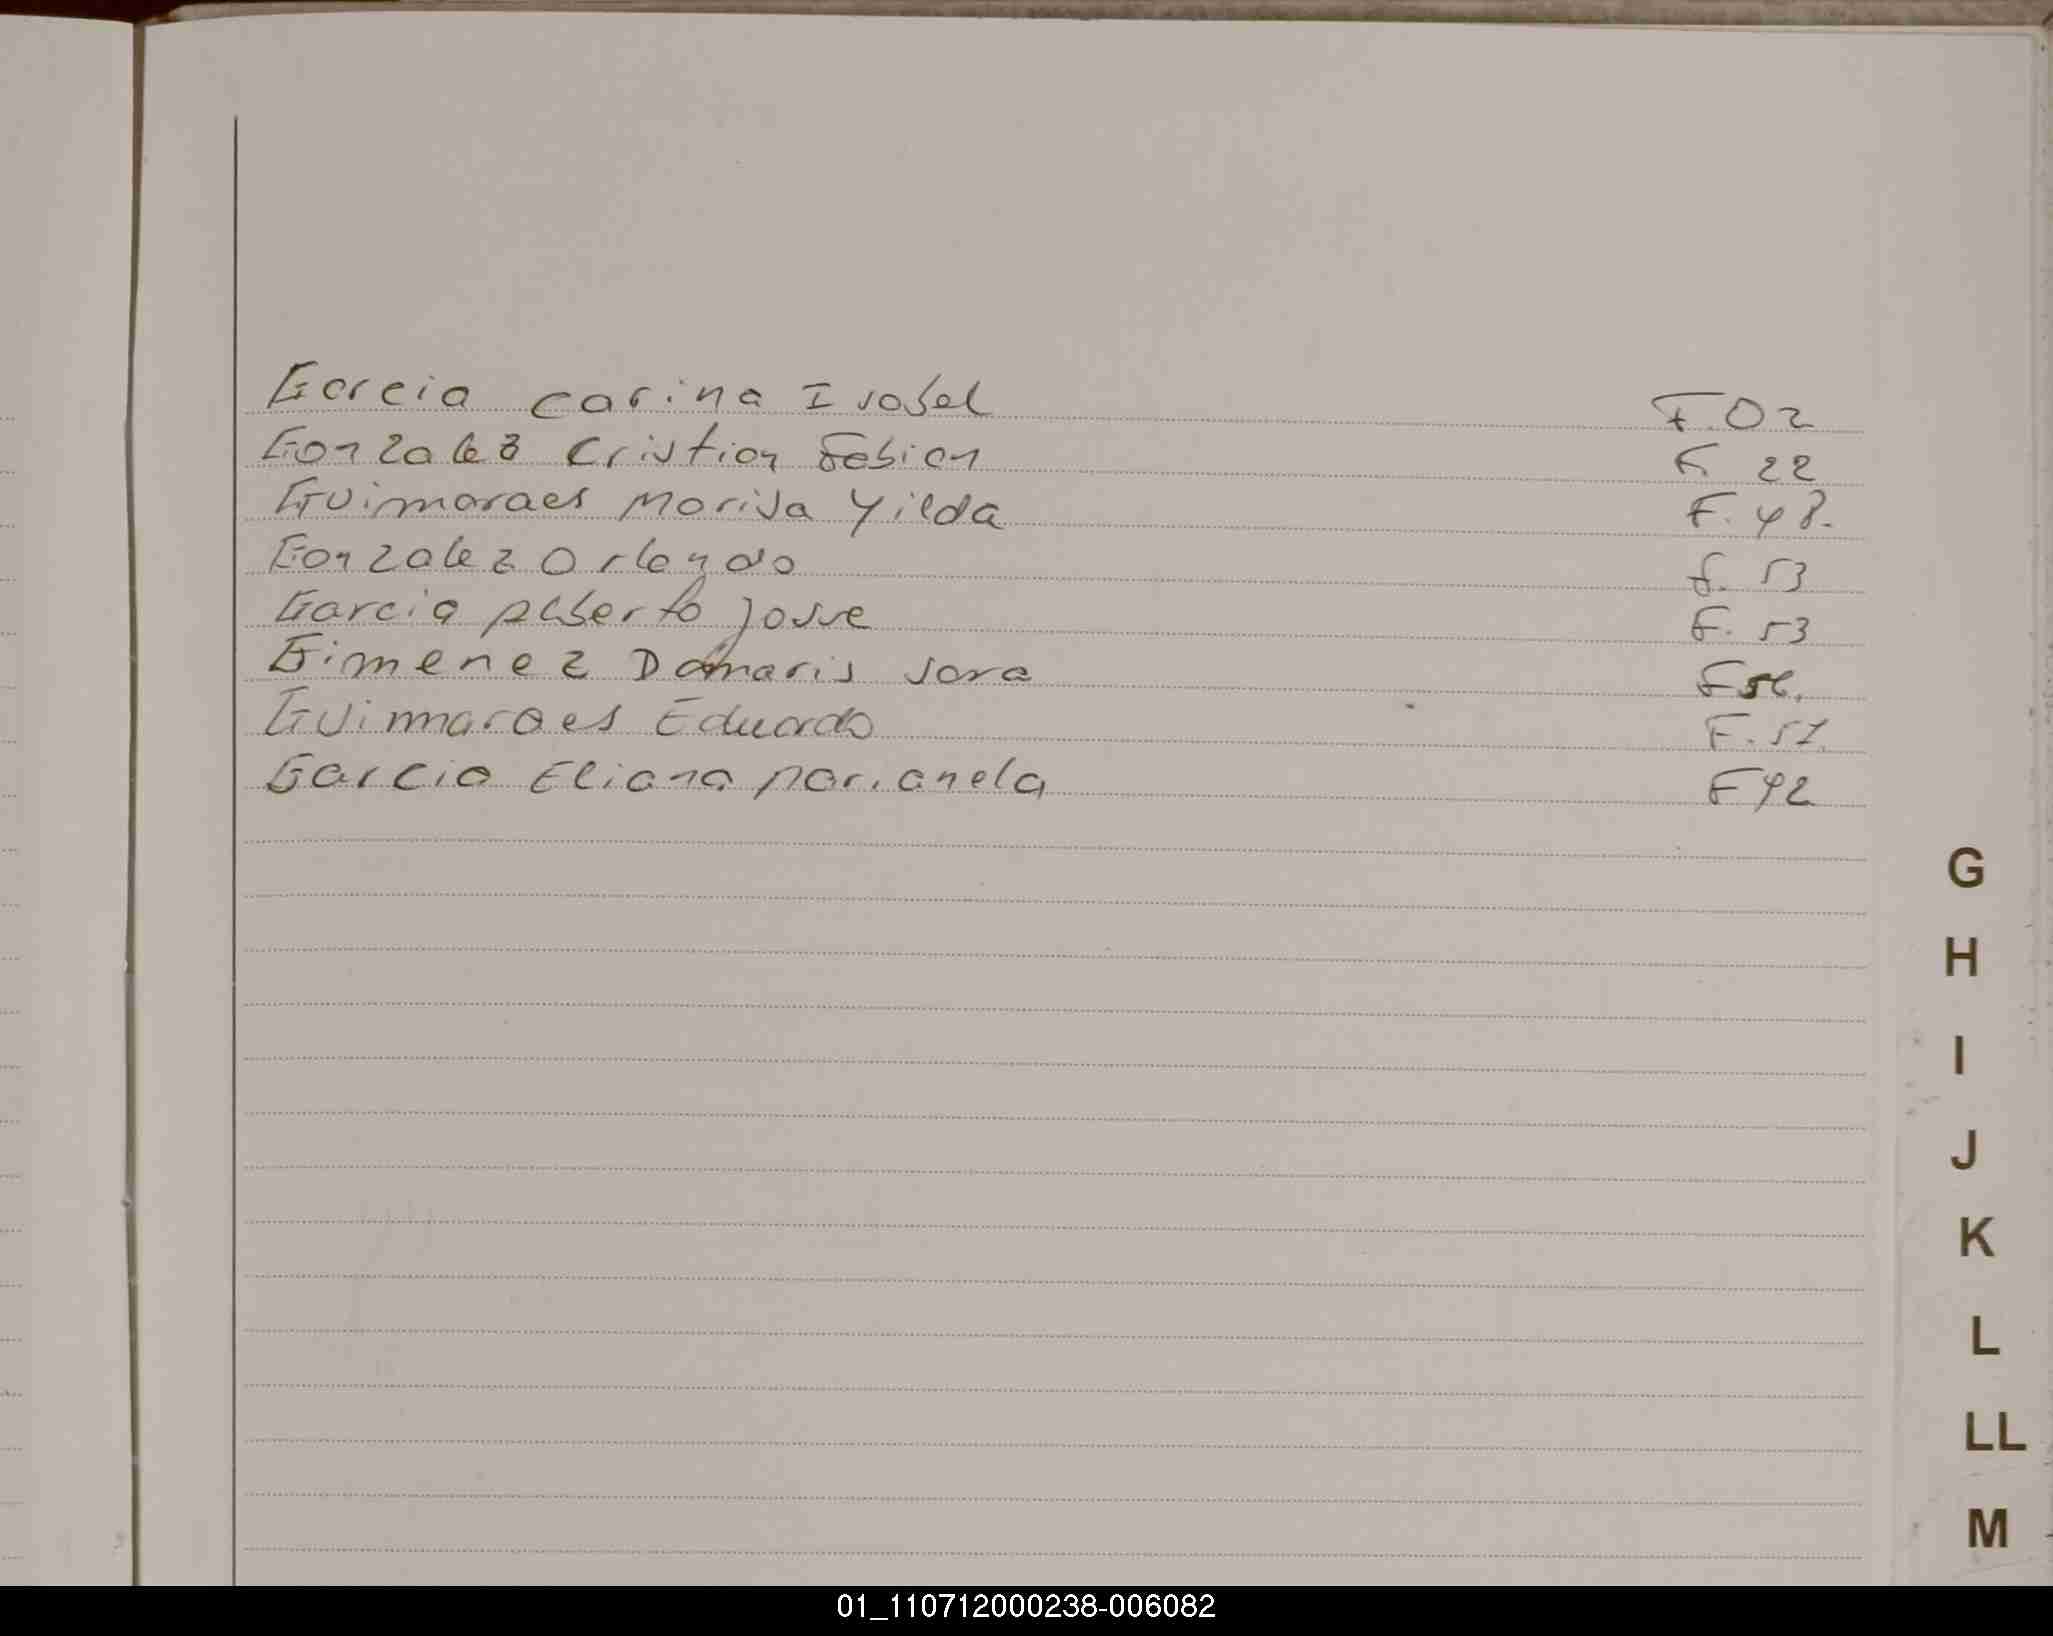 Garcia Carina Isabel F.02
Gonzalez Cristian Fabian F. 22
Guimaraes Marisa Yilda F. 48.
Gonzalez Orlando F. 53
Garcia Alberto Josue F. 53
Gimenez Damaris Sara F 56.
Guimaraes Eduardo F. 57.
Garcia Eliana Marianela F 42
G
H
I
J
K
L
LL
M
01_110712000238-006082